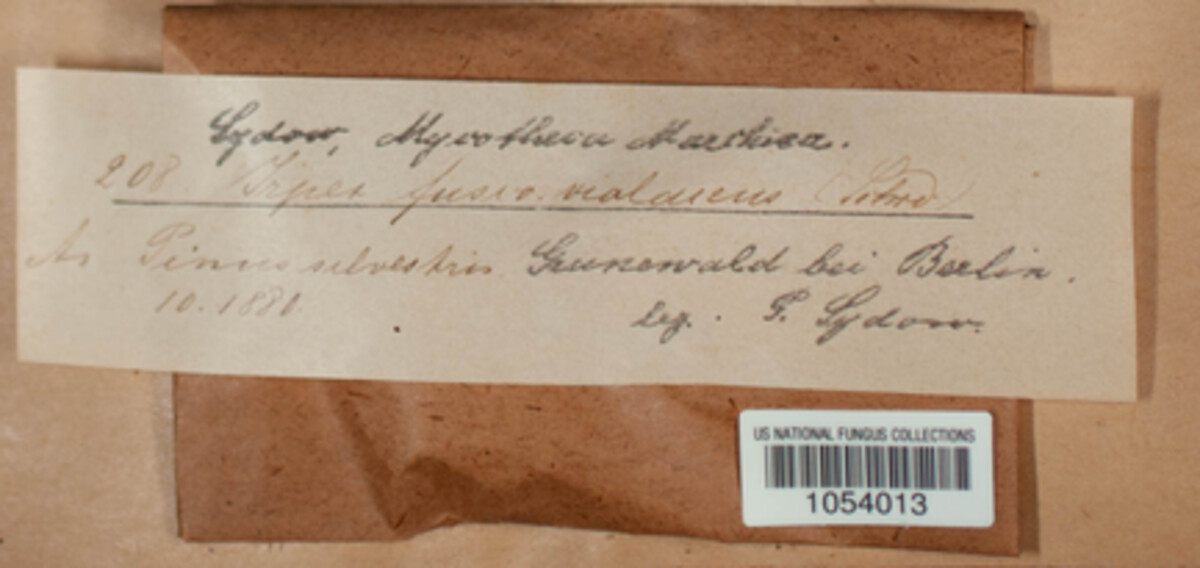 Sydow, Mycotheca Marchica.
208. Irpex fusco-violaceus (Schrd)
An Pinus silvestris Grunewald bei Berlin.
10. 1880.
leg. P. Sydow.
US NATIONAL FUNGUS COLLECTIONS
1054013